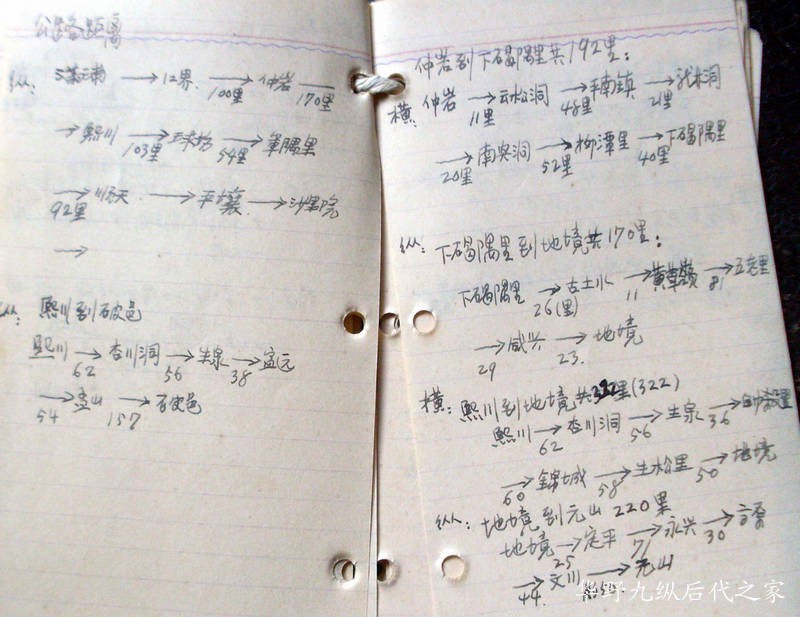 公路各距离
纵: 满浦 → 12界 → 100里 仲岩 → 170里
→ 熙川 → 103里 球场 → 54里 军隅里
→ 92里 顺天 → 平壤 → 沙里院
→
纵: 熙川到石皮邑
熙川 → 62 杏川洞 → 56 生泉 → 38 孟元
→ 54 孟山 → 157 石皮邑
仲岩到下碣隅里共192里:
横: 仲岩 → 11里 云松洞 → 48里 南镇 → 21里
→ 20里 南兴洞 → 52里 柳潭里 → 40里 下碣隅里
纵: 下碣隅里到地境共170里:
下碣隅里 → 26(里) 古土水 → 11 黄草岭 → 81 五老里
→ 29 咸兴 → 23. 地境
横: 熙川到地境共322里(322)
熙川 → 62 杏川洞 → 56 生泉 → 36
→ 60 锦城 → 58 生松里 → 50 地境
纵: 地境到元山 220里
地境 → 25 定平 → 71 永兴 → 30 高原
→ 44. 文川 → 元山
华野九纵后代之家